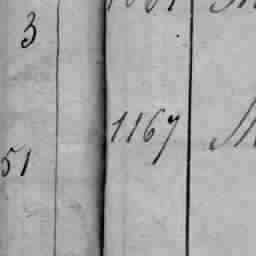 3
1167
51